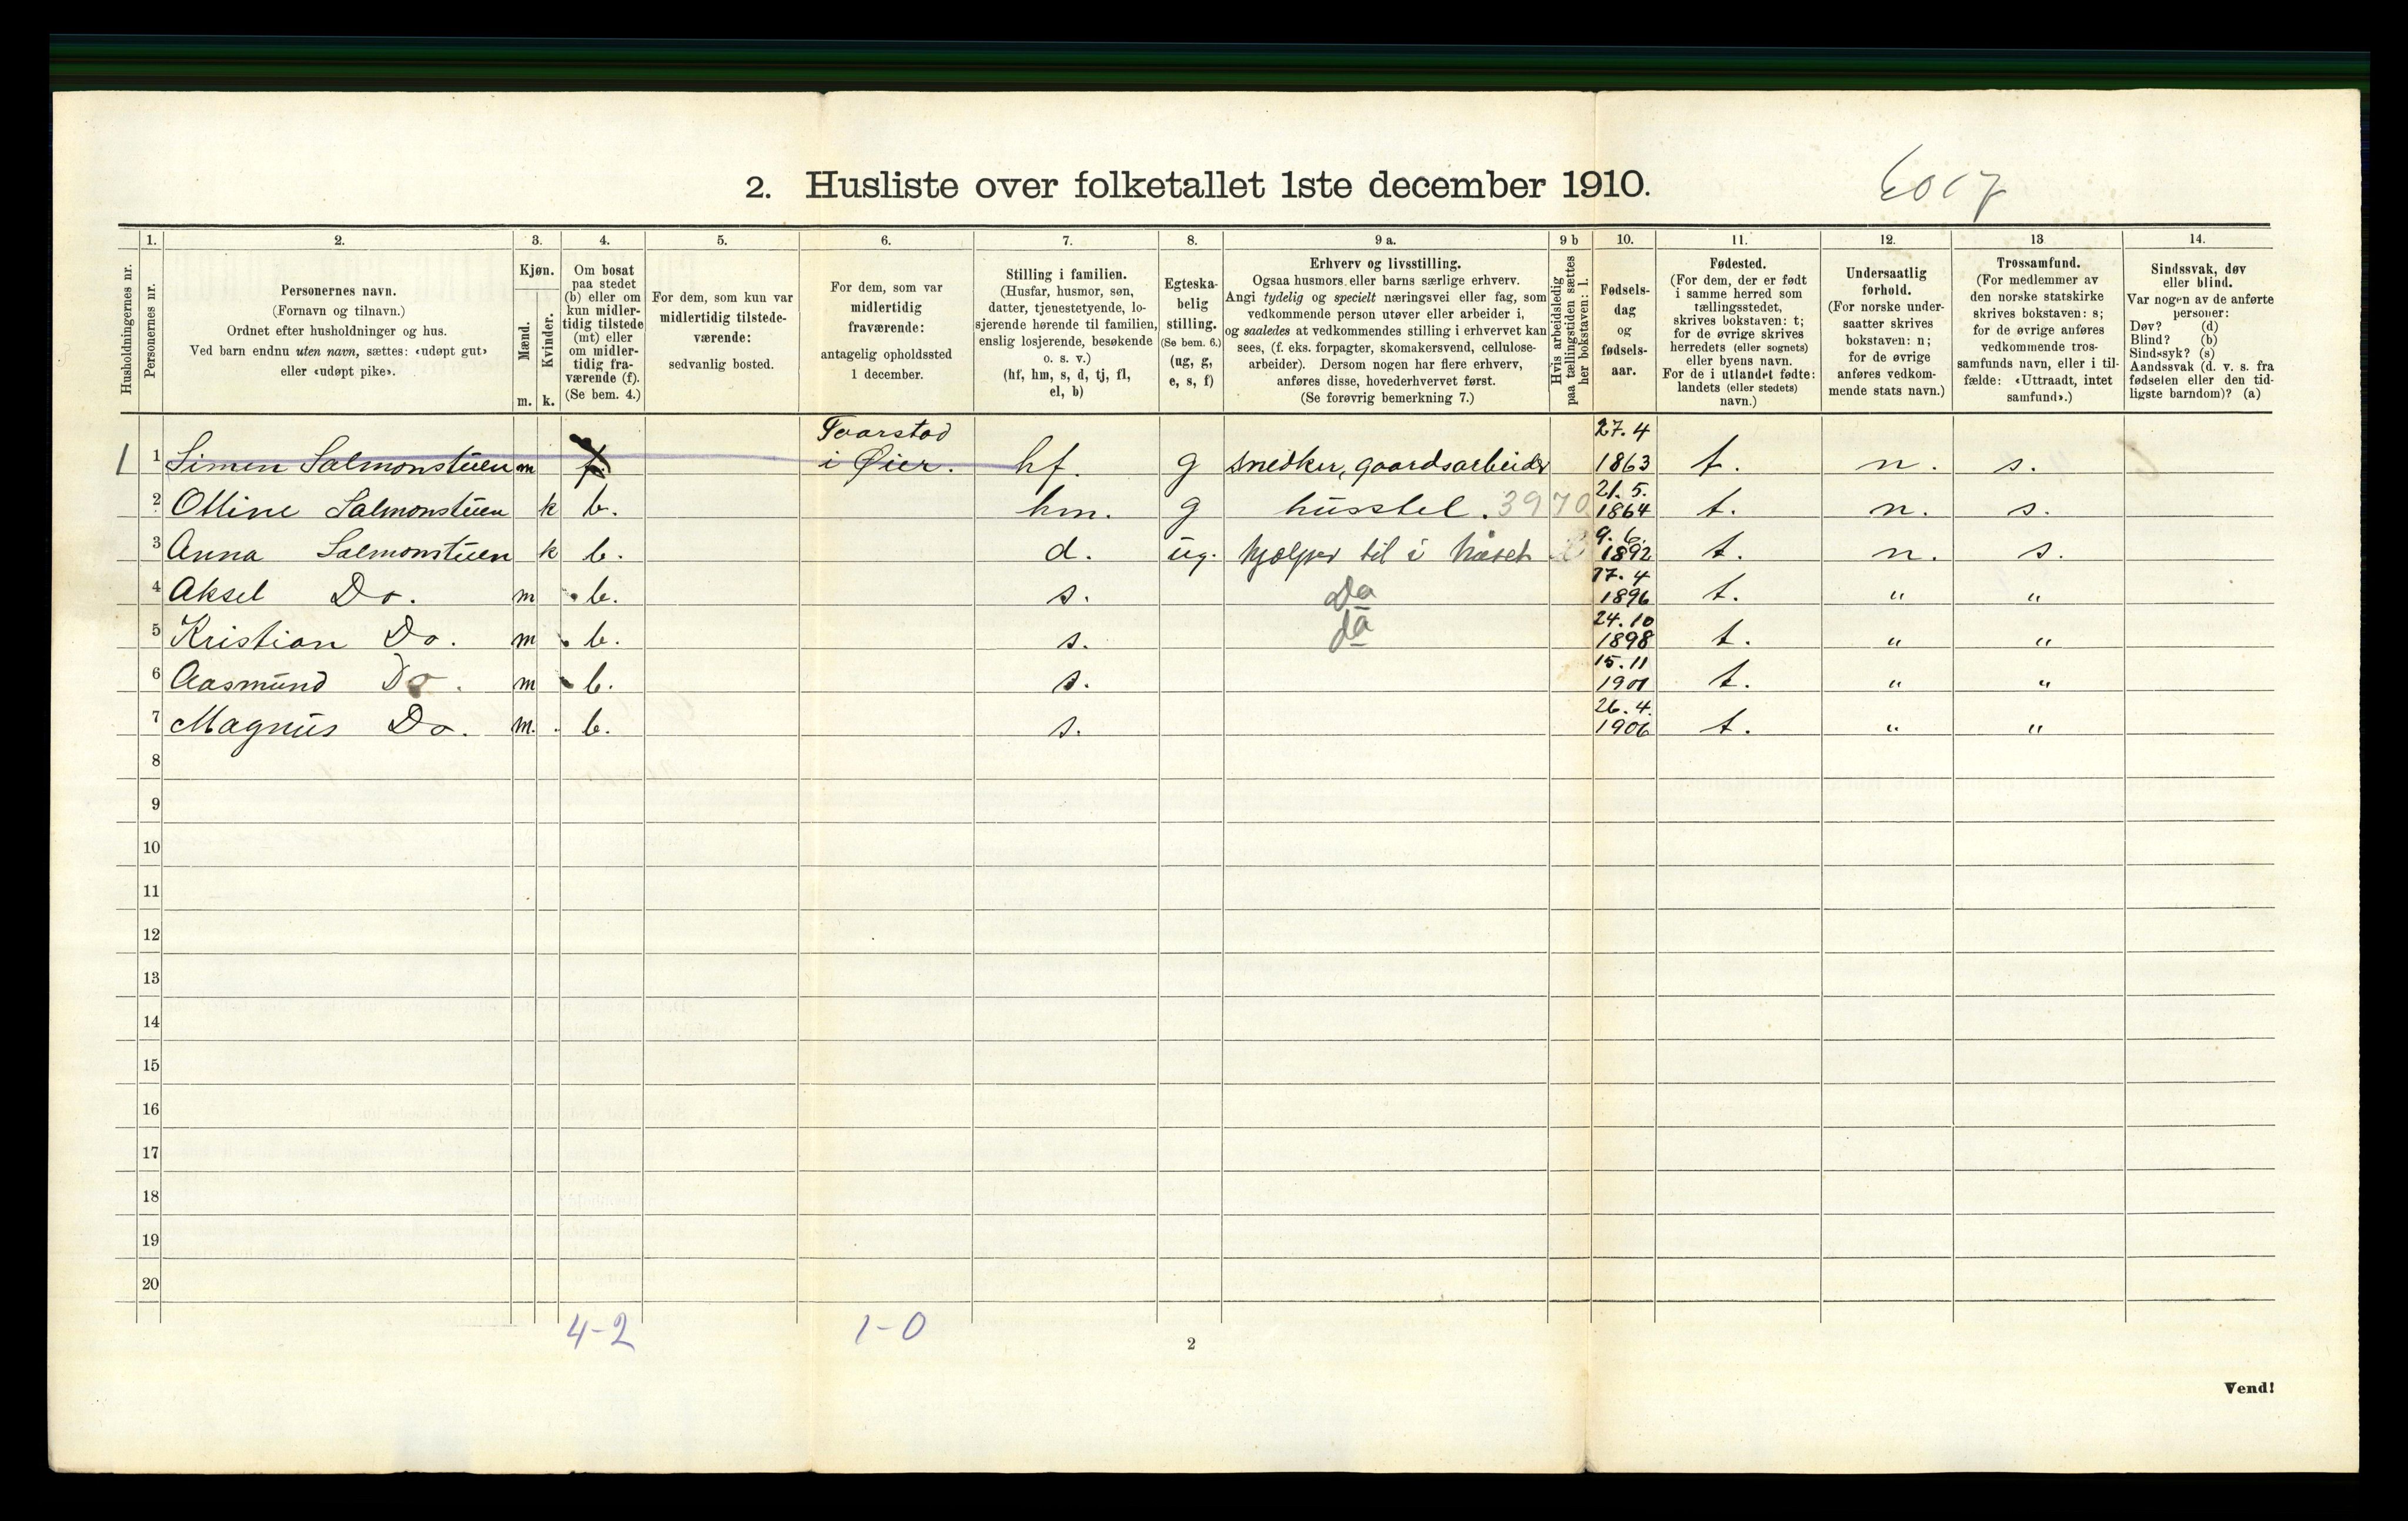 2. Husliste over folketallet 1ste december 1910.
1. 2. 3. 4. 5. 6. 7. 8. 9 a. 9 b 10. 11. 12. 13 14.
Husholdningernes nr.
Personernes nr.
Personernes navn.
(Fornavn og tilnavn.)
Ordnet efter husholdninger og hus.
Ved barn endnu uten navn, sættes: «udøpt gut»
eller «udøpt pike».
Kjøn.
Mænd.
Kvinder.
m. k.
Om bosat
paa stedet
(b) eller om
kun midler-
tidig tilstede
(mt) eller
om midler-
tidig fra-
værende (f).
(Se bem. 4.)
For dem, som kun var
midlertidig tilstede-
værende:
sedvanlig bosted.
For dem, som var
midlertidig
fraværende:
antagelig opholdssted
1 december.
Stilling i familien.
(Husfar, husmor, søn,
datter, tjenestetyende, lo-
sjerende hørende til familien,
enslig losjerende, besøkende
o. s. v.)
(hf, hm, s, d, tj, fl,
el, b)
Egteska-
belig
stilling.
(Se bem. 6.)
(ug, g,
e, s, f)
Erhverv og livsstilling.
Ogsaa husmors eller barns særlige erhverv.
Angi tydelig og specielt næringsvei eller fag, som
vedkommende person utøver eller arbeider i,
og saaledes at vedkommendes stilling i erhvervet kan
sees, (f. eks. forpagter, skomakersvend, cellulose-
arbeider). Dersom nogen har flere erhverv,
anføres disse, hovederhvervet først.
(Se forøvrig bemerkning 7.)
Hvis arbeidsledig
paa tællingstiden sættes
her bokstaven: l.
Fødsels-
dag
og
fødsels-
aar.
Fødested.
(For dem, der er født
i samme herred som
tællingsstedet,
skrives bokstaven: t;
for de øvrige skrives
herredets (eller sognets)
eller byens navn.
For de i utlandet fødte:
landets (eller stedets)
navn.)
Undersaatlig
forhold.
(For norske under-
saatter skrives
bokstaven: n;
for de øvrige
anføres vedkom-
mende stats navn.)
Trossamfund.
(For medlemmer av
den norske statskirke
skrives bokstaven: s;
for de øvrige anføres
vedkommende tros-
samfunds navn, eller i til-
fælde: «Uttraadt, intet
samfund».)
Sindssvak, døv
eller blind.
Var nogen av de anførte
personer:
Døv? (d)
Blind? (b)
Sindssyk? (s)
Aandssvak (d. v. s. fra
fødselen eller den tid-
ligste barndom)? (a)
27. 4
1 1 Simen Salmonstuen m f. i Øier. hf. g snedker, gaardsarbeider 1863 t. n. s.
21. 5.
2 Olline Salmonstuen k b. hm. g husstel. 3970 1864 t. n. s.
9. 6.
3 Anna Salmonstuen k b. d. ug. hjælper til i huset 1892 t. n. s.
17. 4
4 Aksel Do. m b. s. Do 1896 t. " "
24. 10
5 Kristian Do. m b. s. do 1898 t. " "
15. 11
6 Aasmund Do. m b. s. 1901 t. " "
26. 4.
7 Magnus Do. m. b. s. 1906 t. " "
8
9
10
11
12
13
14
15
16
17
18
19
20
4-2 1-0
2
Vend!